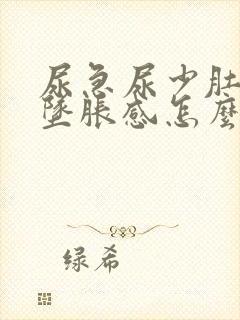 尿急尿少肚
墜脹感怎麼
绿希